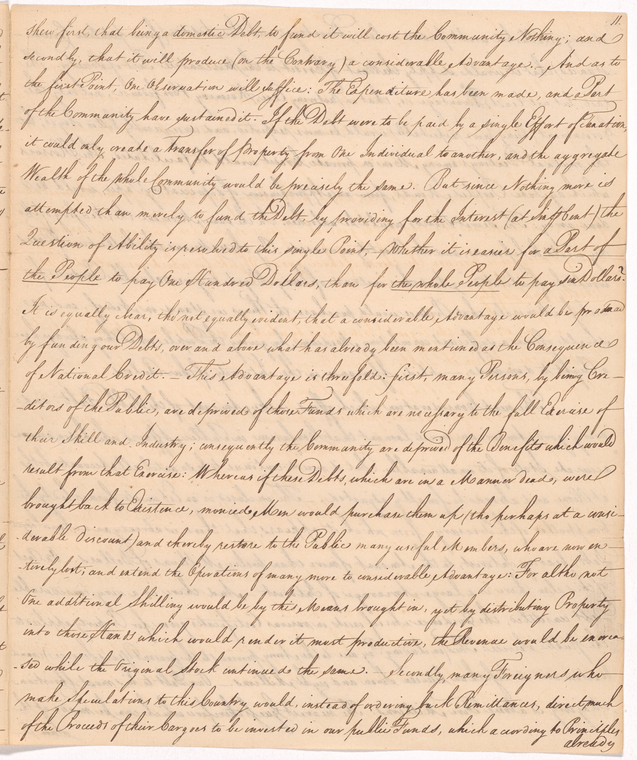 11.
shew first, that being a domestic Debt, to fund it will cost the Community Nothing; and
secondly, that it will produce (on the Contrary) a considerable Advantage. — And as to
the first Point, One Observation will suffice: The Expenditure has been made, and a Part
of the Community have sustained it. If the Debt were to be paid by a single Effort of Taxation,
it could only create a Transfer of Property from One Individual to another, and the aggregate
Wealth of the whole Community would be precisely the same. But since Nothing more is
attempted than merely to fund the Debt by providing for the Interest (at Six ⅌ Cent) the
Question of Ability is resolved to this single Point, — Whether it is easier for a Part of
the People to pay One Hundred Dollars, than for the whole People to pay six Dollars?
It is equally clear, tho' not equally evident, that a considerable Advantage would be produced
by funding our Debts, over and above what has already been mentioned as the Consequence
of National Credit. — This Advantage is threefold: first, many Persons, by being Cre-
ditors of the Public, are deprived of those Funds which are necessary to the full Exercise of
their Skill and Industry; consequently the Community are deprived of the Benefits which would
result from that Exercise: Whereas if these Debts, which are in a Manner dead, were
brought back to Existence, monied Men would purchase them up (tho perhaps at a consi-
derable Discount) and thereby restore to the Public many useful Members, who are now en-
tirely lost, and extend the Operations of many more to considerable Advantage: For altho not
One additional Shilling would be by this Means brought in, yet by distributing Property
into those Hands which would render it most productive, the Revenue would be increa-
-sed while the Original Stock continued the same. Secondly, many Foreigners who
make Speculations to this Country would, instead of ordering back Remittances, direct much
of the Proceeds of their Cargoes to be invested in our public Funds, which according to Principles
already